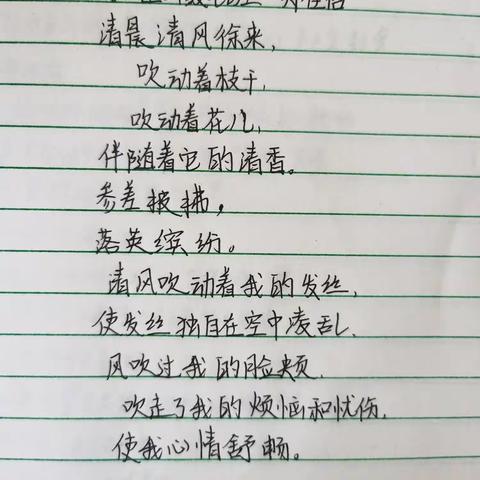 清晨清风徐来,
吹动着枝干,
吹动着花儿,
伴随着它的清香。
参差披拂,
落英缤纷。
清风吹动着我的发丝,
使发丝独自在空中凌乱.
风吹过我的脸颊.
吹走了我的烦恼和忧伤.
使我心情舒畅。